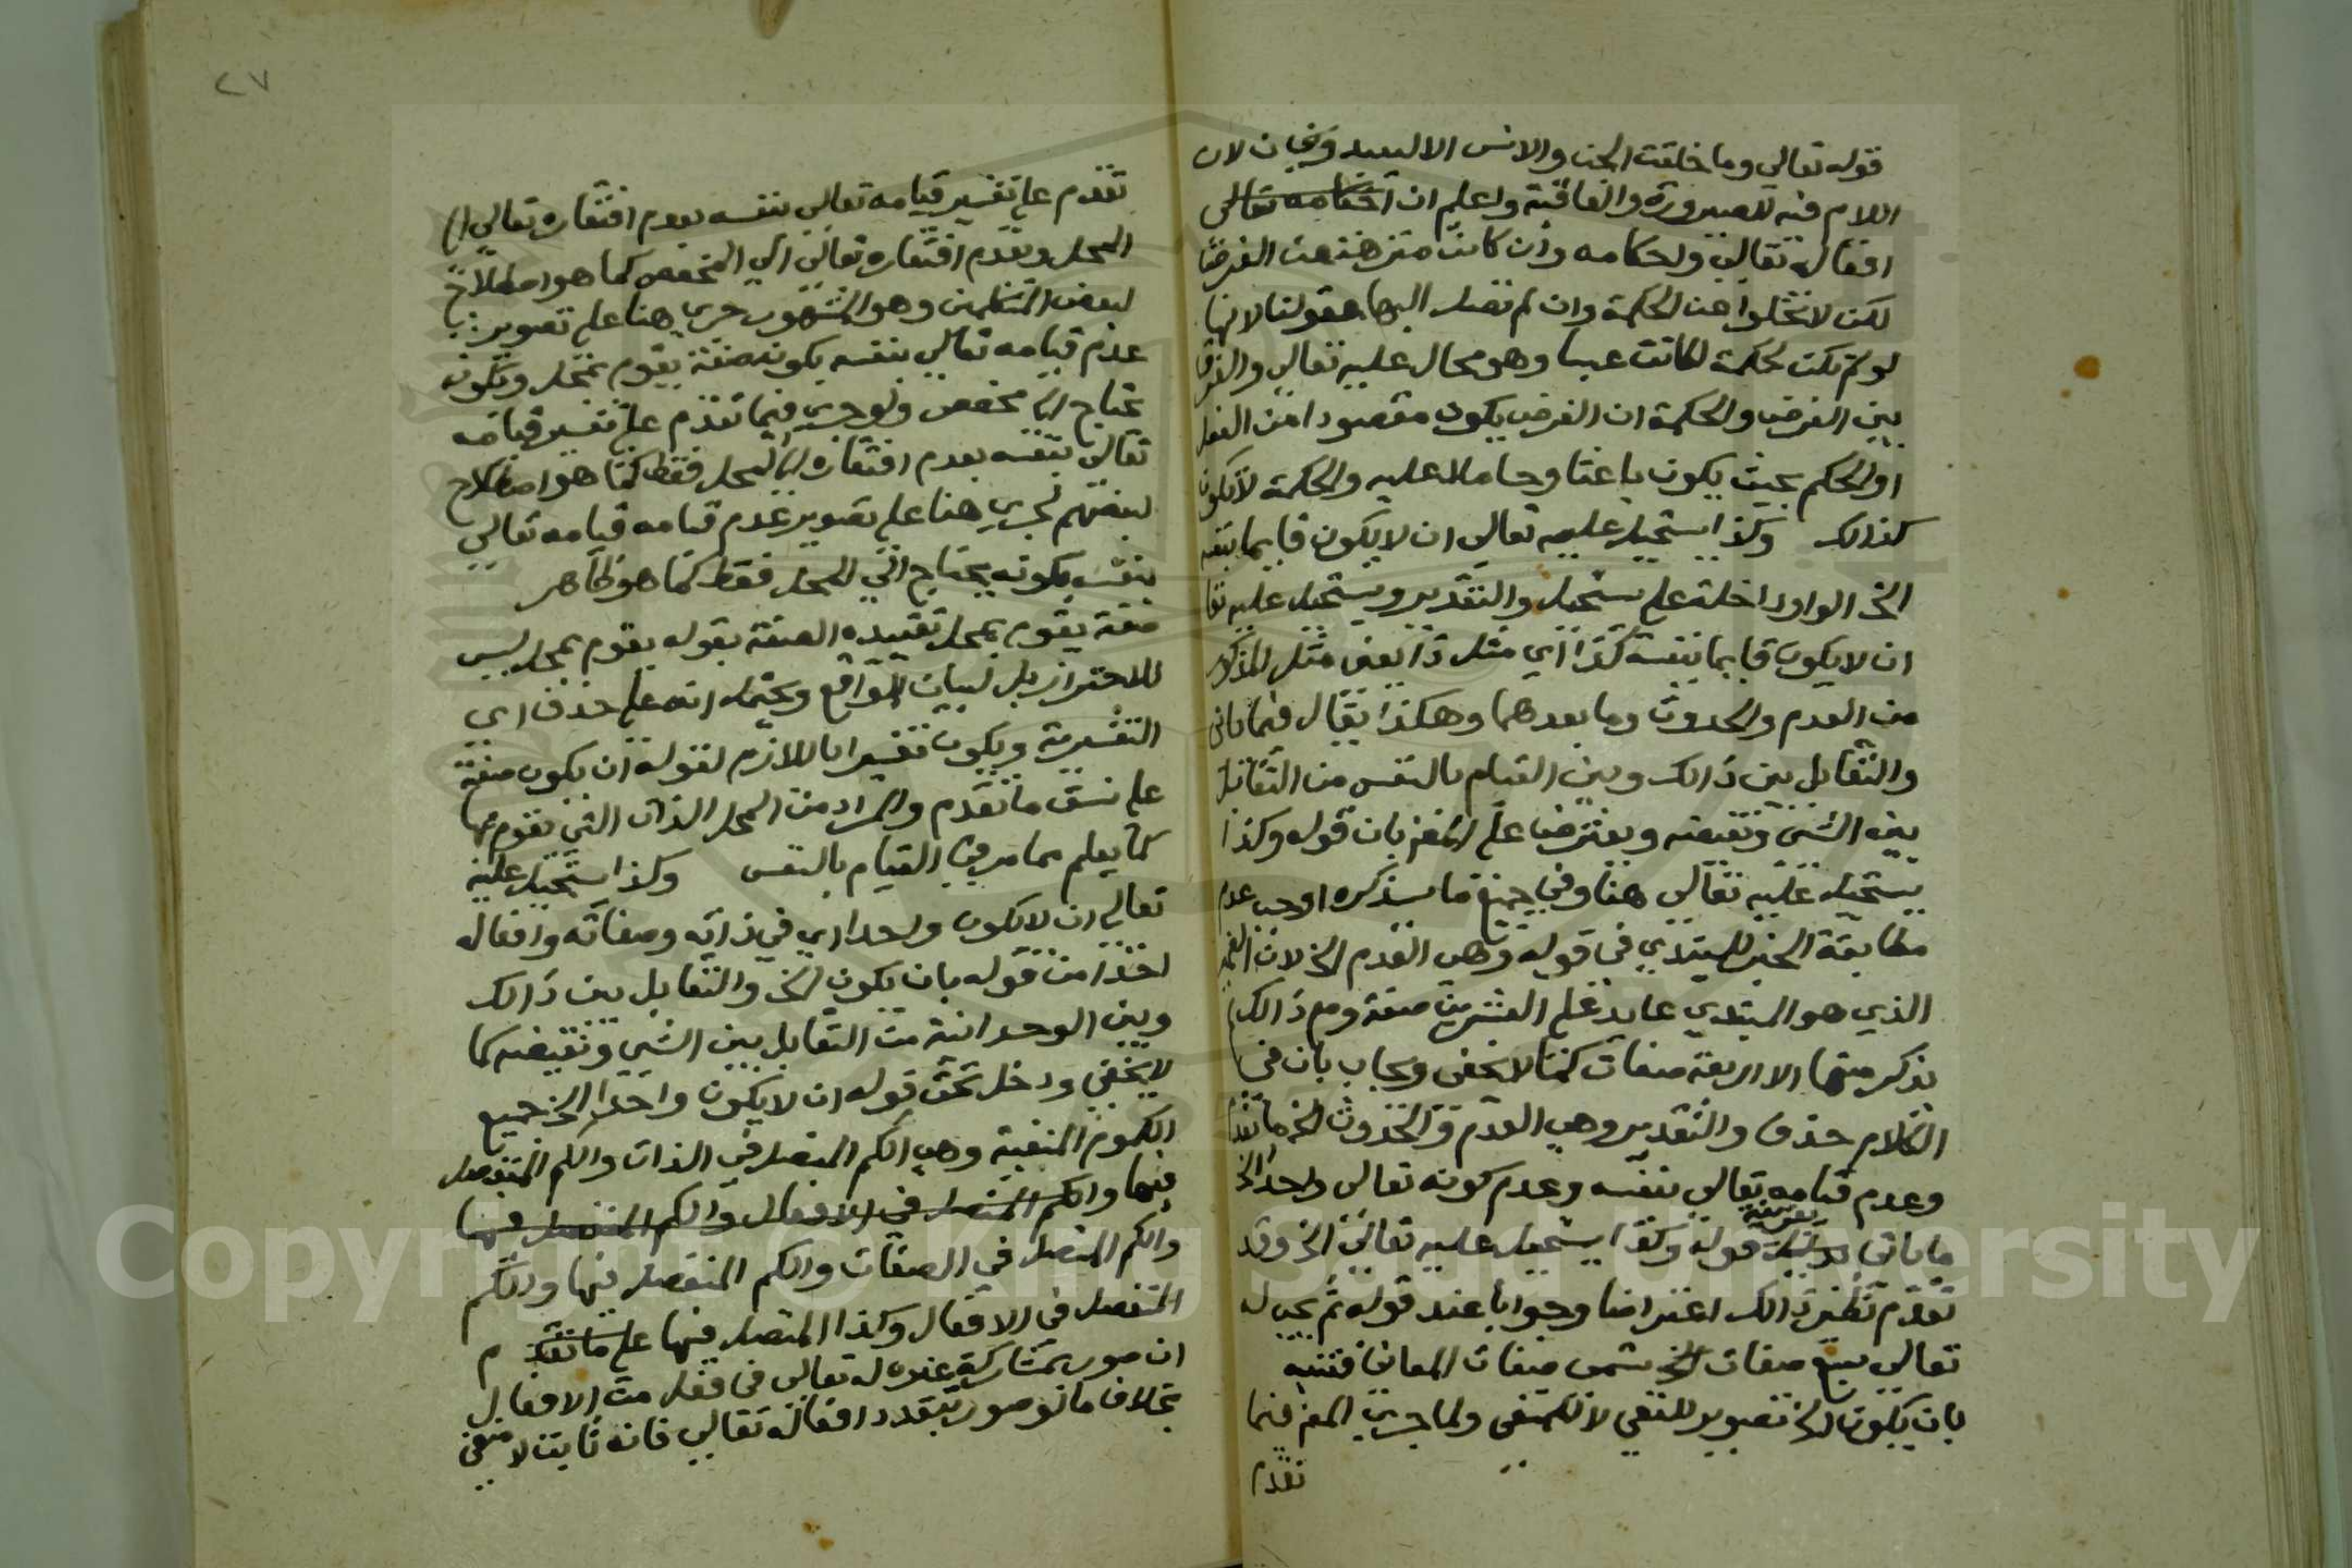 قوله تعالى وما خلقت الجن والانس الا ليعبدون يجاب لان
اللام فيه للصيرورة والعاقبة واعلم ان احكامه تعالى
افعاله تعالى واحكامه وان كانت منزهة عن الغرض
لكن لا تخلوا عن الحكمة وان لم تصل اليها عقولنا لانها
لو لم تكن لحكمة لكانت عبثا وهو محال عليه تعالى والفرق
بين الغرض والحكمة ان الغرض يكون مقصودا من الفعل
او الحكم بحيث يكون باعثا وحاملا عليه والحكمة لا تكون
كذالك وكذا يستحيل عليه تعالى ان لا يكون قايما بنفسه
الخ الواو داخلة على يستحيل والتقدير ويستحيل عليه تعا
ان لا يكون قايما بنفسه كذا اي مثل ذا يعنى مثل المذكور
من العدم والحدوث وما بعدهما وهكذا يقال فيما ياتى
والتقابل بين ذالك وبين القيام بالنفس من التقابل
بين الشئ ونقيضه ويعترض على المص بان قوله وكذا
يستحيل عليه تعالى هنا وفي جميع ما سيذكره اوجب عدم
مطابقة الخبر للمبتدي فى قوله وهى العدم الخ لان الضمير
الذي هو المبتدي عايد على العشرين صفة ومع ذالك لم
يذكر منها الا اربعة صفات كما لا يخفى ويجاب بان في
الكلام حذف والتقدير وهي العدم والحدوث الخ ما تقدم
وعدم قيامه تعالى بنفسه وعدم كونه تعالى واحدا الخ
ما ياتى بقرينة قوله وكذا يستحيل عليه تعالى الخ وقد
تقدم نظير ذالك اعتراضا وجوابا عند قوله ثم يجب له
تعالى سبع صفات الخ تسمى صفات المعانى فتنبه
بان يكون الخ تصوير للنفي لا للمنفى ولما جري المص فيما
تقدم
٢٧
تقدم على تفسير قيامه تعالى بنفسه بعدم افتقاره تعالى الى
المحل وبعدم افتقاره تعالى الى المخصص كما هو اصطلاح
لبعض المتكلمين وهو المشهور جرى هنا على تصوير
عدم قيامه تعالى بنفسه بكونه صفة يقوم بمحل وبكونه
يحتاج الى مخصص ولو جري فيما تقدم على تفسير قيامه
تعالى بنفسه بعدم افتقاره الى المحل فقط كما هو اصطلاح
لبعضهم لجرى هنا على تصوير عدم قيامه قيامه تعالى
بنفسه بكونه يحتاج الى المحل فقط كما هو ظاهر
صفة يقوم بمحل تقييده الصفة بقوله يقوم بمحل ليس
للاحتراز بل لبيان الواقع ويحتمل انه على حذف اى
التفسيرية ويكون تفسيرا باللازم لقوله ان يكون صفة
على نسق ما تقدم والمراد من المحل الذات التي تقوم بها
كما يعلم مما مر في القيام بالنفس وكذا يستحيل عليه
تعالى ان لا يكون واحدا اي في ذاته وصفاته وافعاله
اخذا من قوله بان يكون الخ والتقابل بين ذالك
وبين الوحدانية من التقابل بين الشي ونقيضه كما
لا يخفي ودخل تحت قوله ان لا يكون واحدا الخ جميع
الكموم المنفية وهى الكم المتصل في الذات والكم المنفصل
فيها والكم المتصل في الافعال والكم المنفصل فيها
والكم المتصل في الصفات والكم المنفصل فيها والكم
المنفصل في الافعال وكذا المتصل فيها على ما تقدم
ان صور بمشاركة غيره له تعالى فى فعل من الافعال
بخلاف ما لو صور بتعدد افعاله تعالى فانه ثابت لا منفى